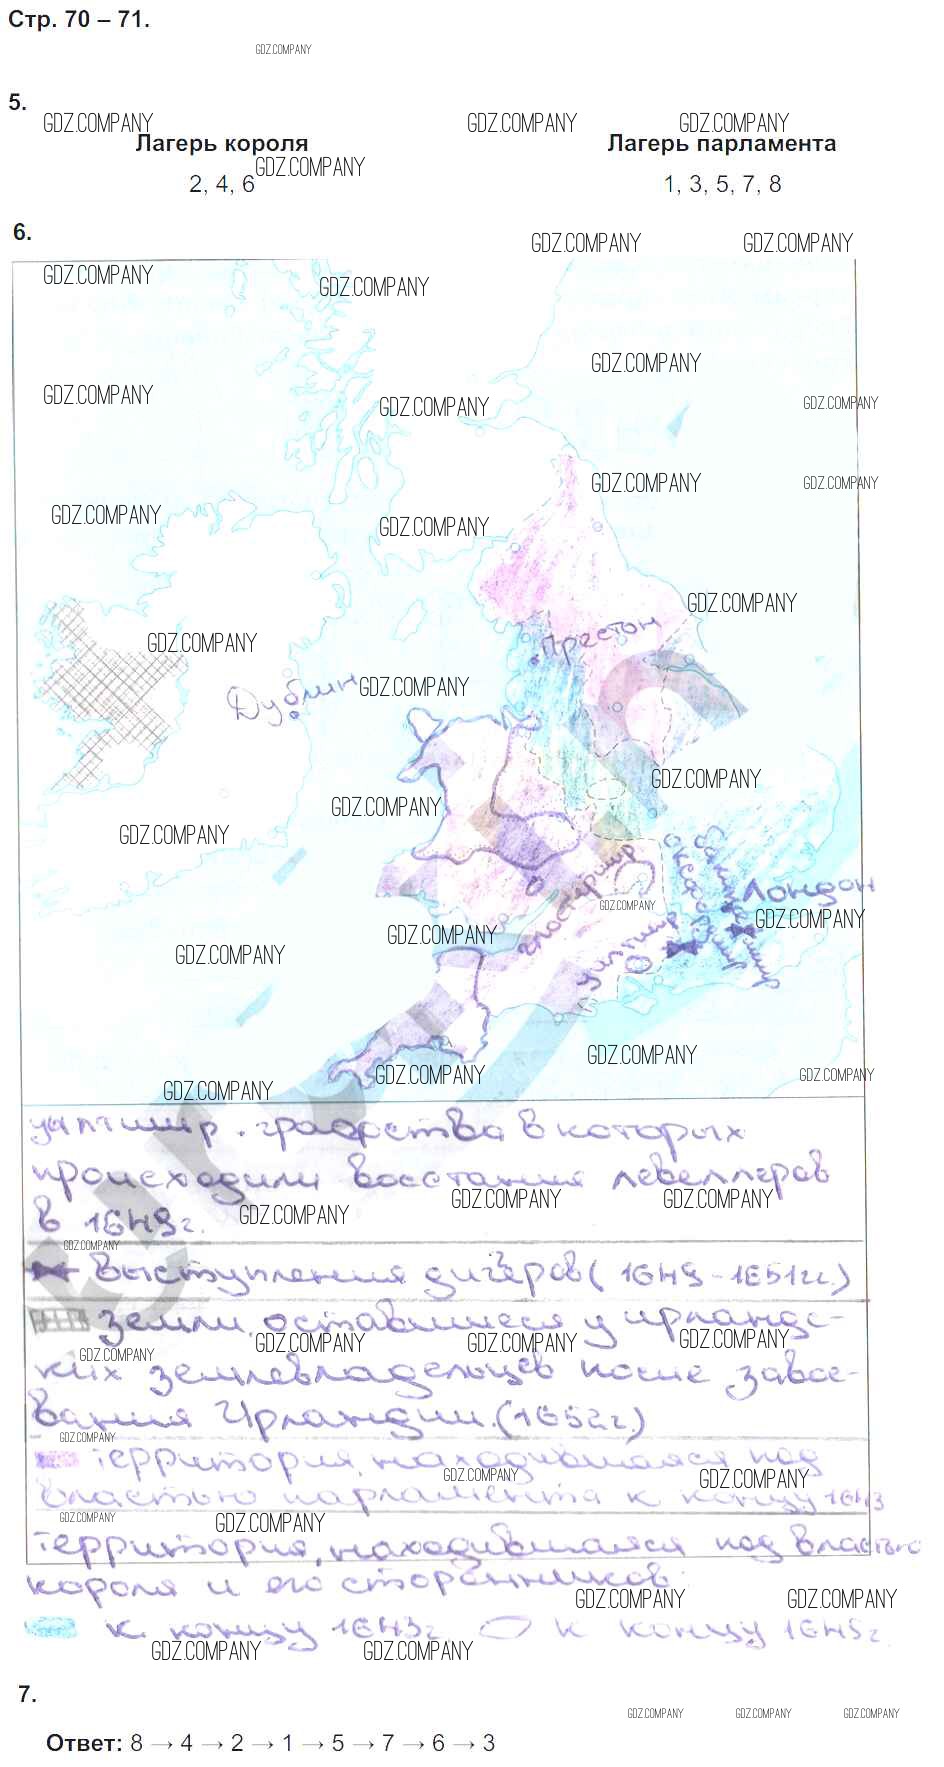 Стр. 70 – 71.
GDZ.COMPANY
5.
GDZ.COMPANY GDZ.COMPANY GDZ.COMPANY
Лагерь короля Лагерь парламента
GDZ.COMPANY
2, 4, 6 1, 3, 5, 7, 8
6.
GDZ.COMPANY GDZ.COMPANY
GDZ.COMPANY GDZ.COMPANY
GDZ.COMPANY
GDZ.COMPANY GDZ.COMPANY GDZ.COMPANY
GDZ.COMPANY GDZ.COMPANY
GDZ.COMPANY GDZ.COMPANY
GDZ.COMPANY
Престон
GDZ.COMPANY
Дублин GDZ.COMPANY
GDZ.COMPANY
GDZ.COMPANY
GDZ.COMPANY
глостершир
Лондон
GDZ.COMPANY
GDZ.COMPANY
GDZ.COMPANY
уилтшир
GDZ.COMPANY
GDZ.COMPANY
GDZ.COMPANY GDZ.COMPANY
GDZ.COMPANY
уилтшир - графства в которых
происходили восстания левеллеров
GDZ.COMPANY GDZ.COMPANY
в 1649г. GDZ.COMPANY
GDZ.COMPANY
выступления диггеров (1649-1651гг.)
земли, оставшиеся у ирландс-
GDZ.COMPANY GDZ.COMPANY GDZ.COMPANY
GDZ.COMPANY
ких землевладельцев после завое-
вания Ирландии. (1652г.)
GDZ.COMPANY
территория, находившаяся под
GDZ.COMPANY GDZ.COMPANY
властью парламента к концу 1643
GDZ.COMPANY GDZ.COMPANY
территория, находившаяся под властью
короля и его сторонников:
GDZ.COMPANY GDZ.COMPANY
к концу 1643г. к концу 1645г.
GDZ.COMPANY GDZ.COMPANY
7.
GDZ.COMPANY GDZ.COMPANY GDZ.COMPANY
Ответ: 8 → 4 → 2 → 1 → 5 → 7 → 6 → 3